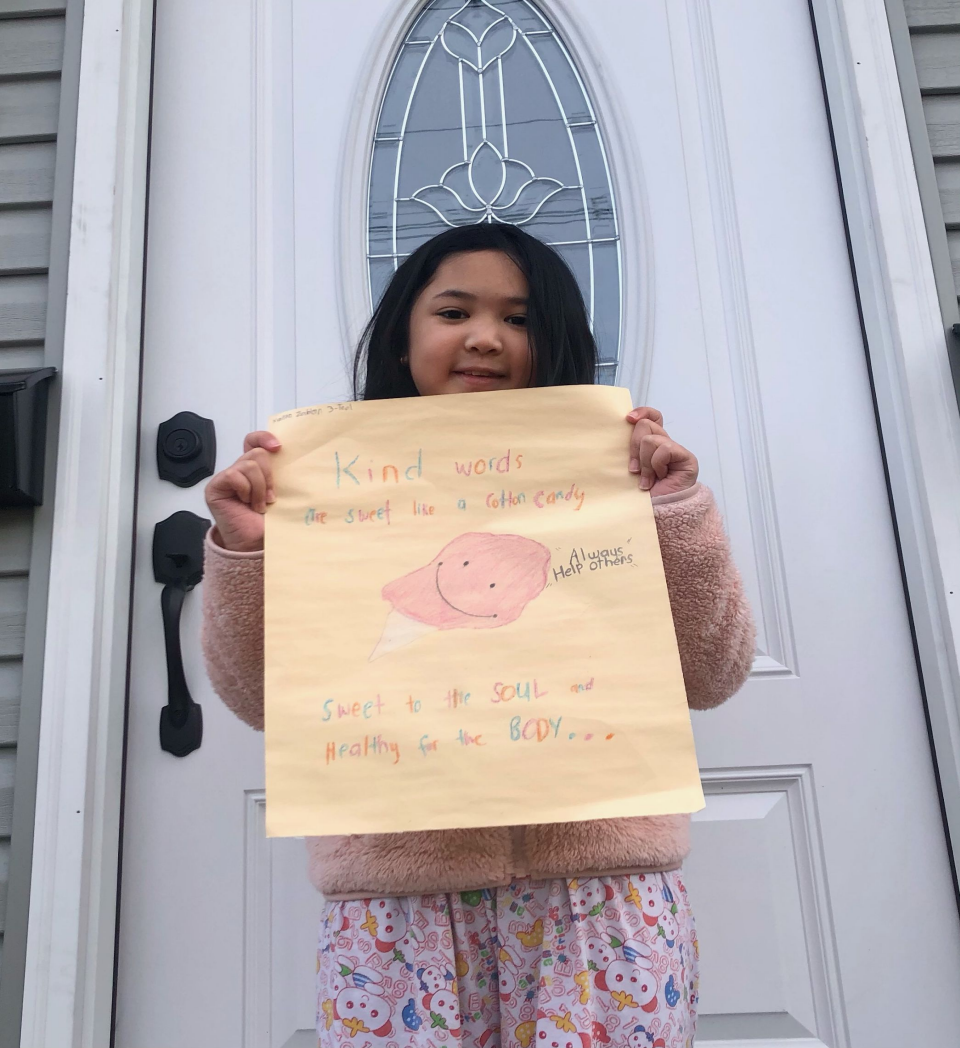 Kind words
are sweet like a cotton candy
"Always
Help others"
Sweet to the SOUL and
Healthy for the BODY....